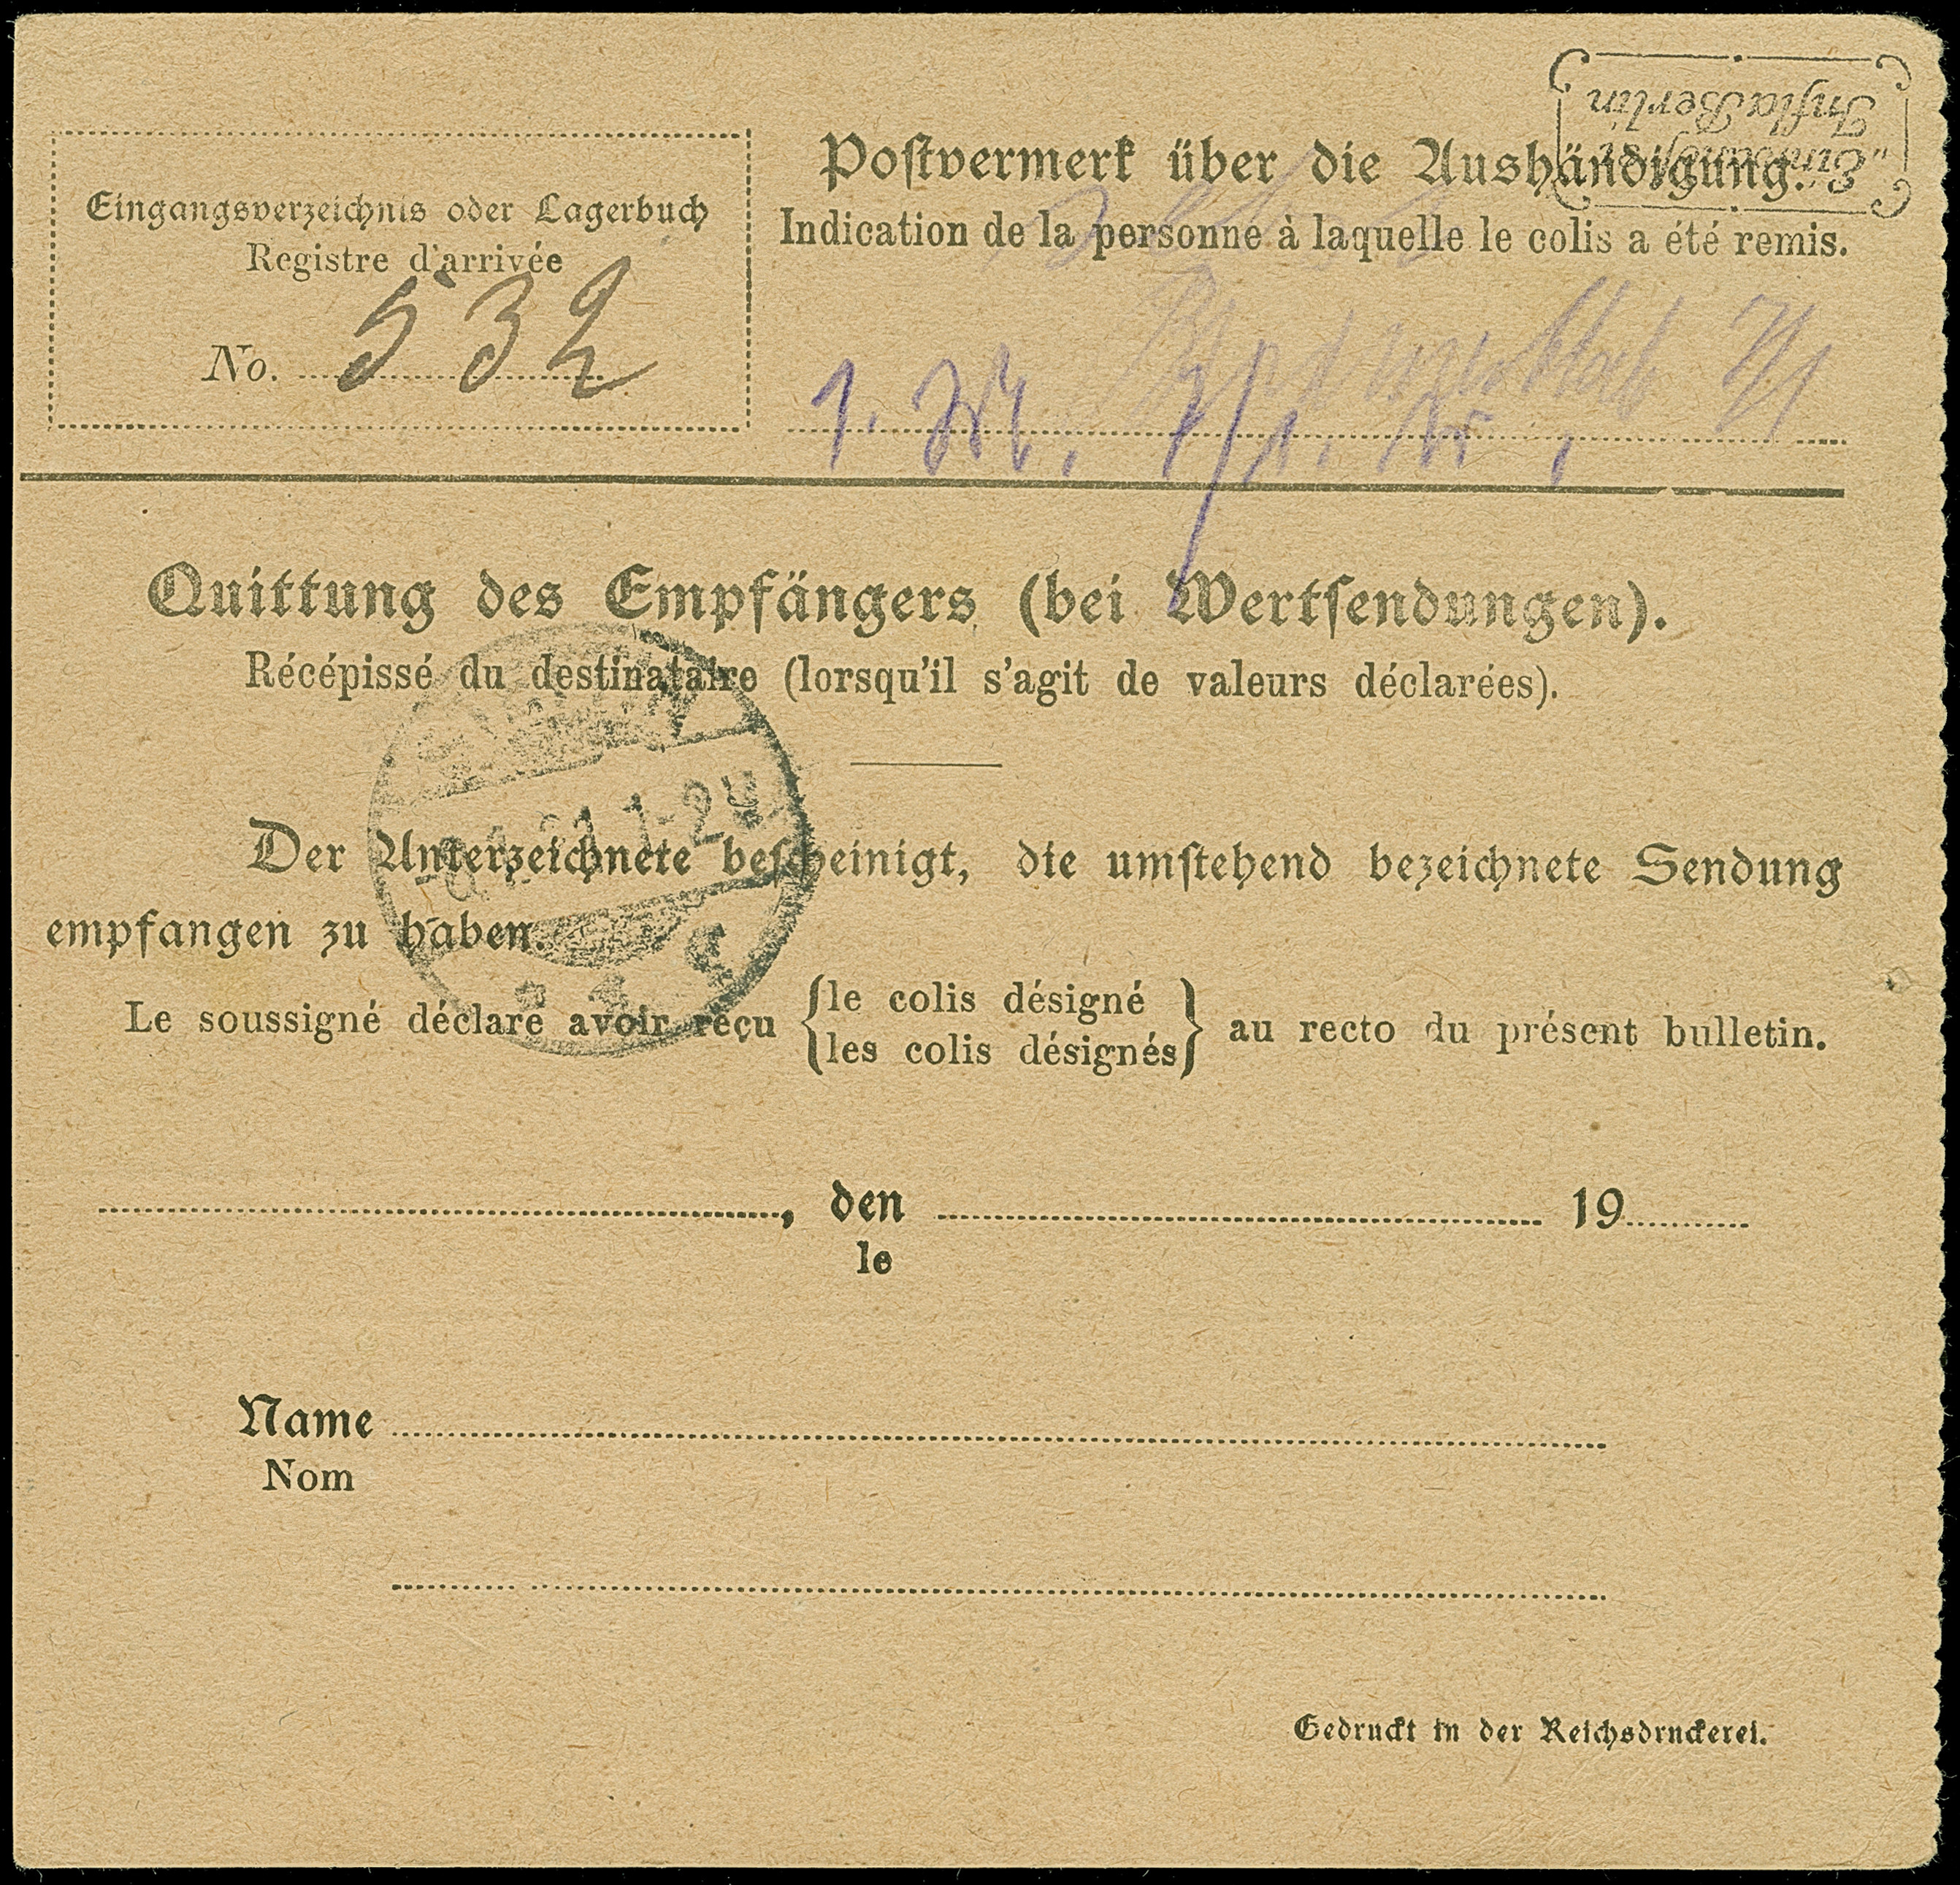 Eingangsverzeichnis oder Lagerbuch
Registre d'arrivée
No. 532
Postvermerk über die Aushändigung.
Indication de la personne à laquelle le colis a été remis.
Infla Berlin
Quittung des Empfängers (bei Wertsendungen).
Récépissé du destinataire (lorsqu'il s'agit de valeurs déclarées).
Der Unterzeichnete bescheinigt, die umstehend bezeichnete Sendung
empfangen zu haben.
Le soussigné déclare avoir reçu {le colis désigné / les colis désignés} au recto du présent bulletin.
, den 19
le
Name
Nom
Gedruckt in der Reichsdruckerei.